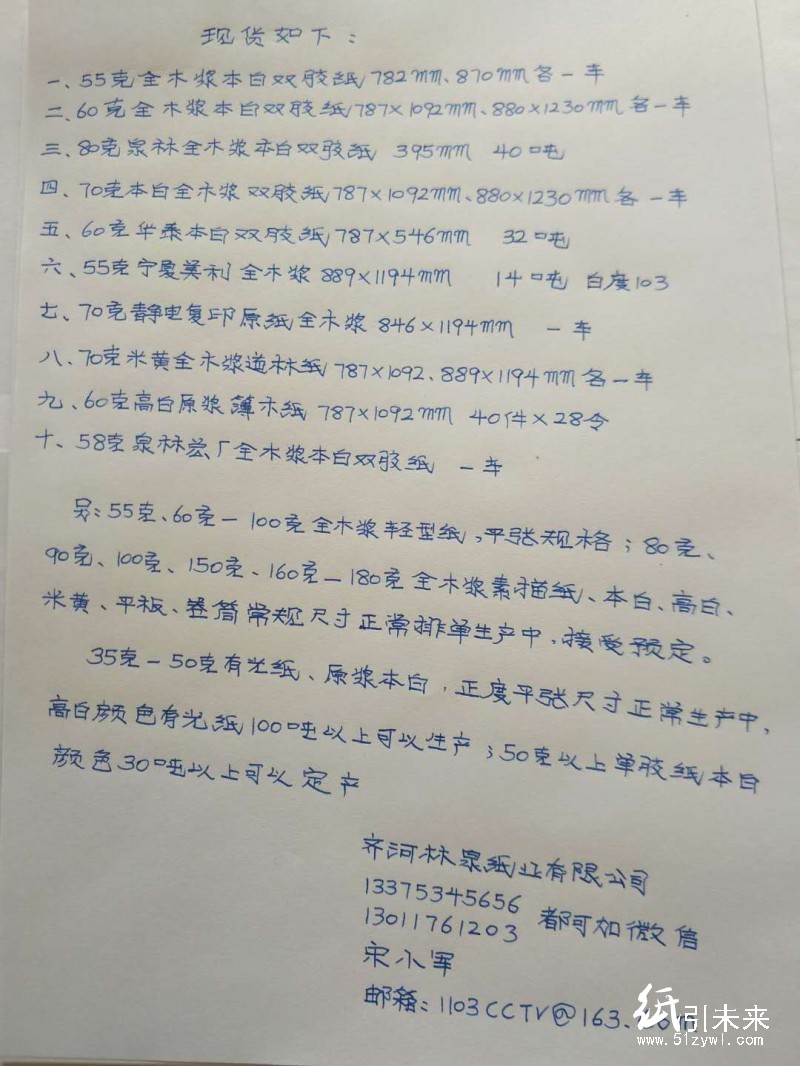 现货如下：
一、55克全木浆本白双胶纸782mm、870mm各一车
二、60克全木浆本白双胶纸787×1092mm、880×1230mm各一车
三、80克泉林全木浆本白双胶纸 395mm 40吨
四、70克本白全木浆双胶纸787×1092mm、880×1230mm各一车
五、60克华泰本白双胶纸787×546mm 32吨
六、55克宁夏美利全木浆889×1194mm 14吨 白度103
七、70克静电复印原纸全木浆846×1194mm 一车
八、70克米黄全木浆道林纸787×1092、889×1194mm各一车
九、60克高白原浆薄木纸787×1092mm 40件×28令
十、58克泉林 厂全木浆本白双胶纸 一车
另：55克、60克—100克全木浆轻型纸，平张规格；80克、
90克、100克、150克、160克—180克全木浆素描纸、本白、高白、
米黄、平板、卷筒常规尺寸正常排单生产中，接受预定。
35克—50克有光纸、原浆本白，正度平张尺寸正常生产中，
高白颜色有光纸100吨以上可以生产；50克以上单胶纸本白
颜色30吨以上可以定产
齐河林泉纸业有限公司
13375345656
13011761203 都可加微信
宋小军
邮箱：1103CCTV@163.com
纸引未来
www.51zywl.com